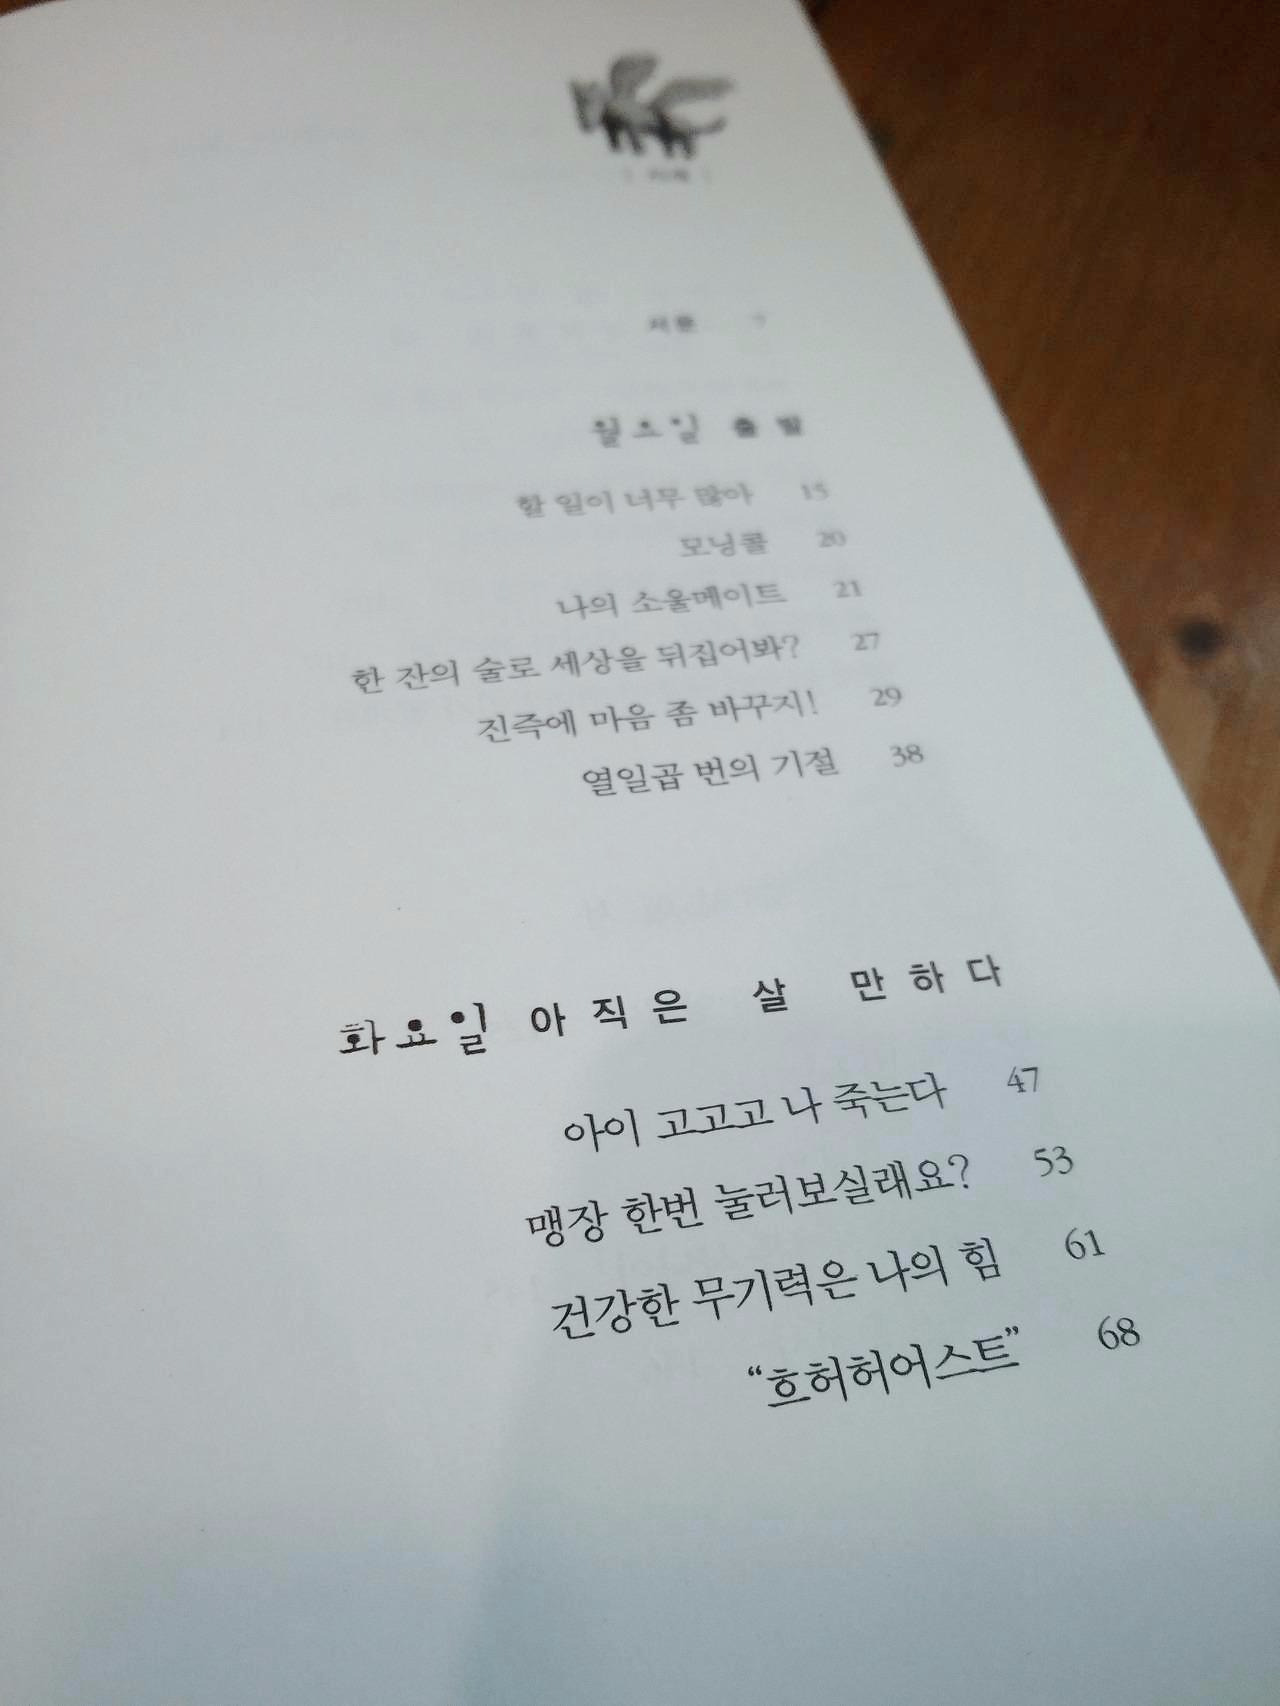 서문 7
월요일 출발
할 일이 너무 많아 15
모닝콜 20
나의 소울메이트 21
한 잔의 술로 세상을 뒤집어봐? 27
진즉에 마음 좀 바꾸지! 29
열일곱 번의 기절 38
화요일 아직은 살 만하다
아이 고고고 나 죽는다 47
맹장 한번 눌러보실래요? 53
건강한 무기력은 나의 힘 61
“흐허허어스트” 68